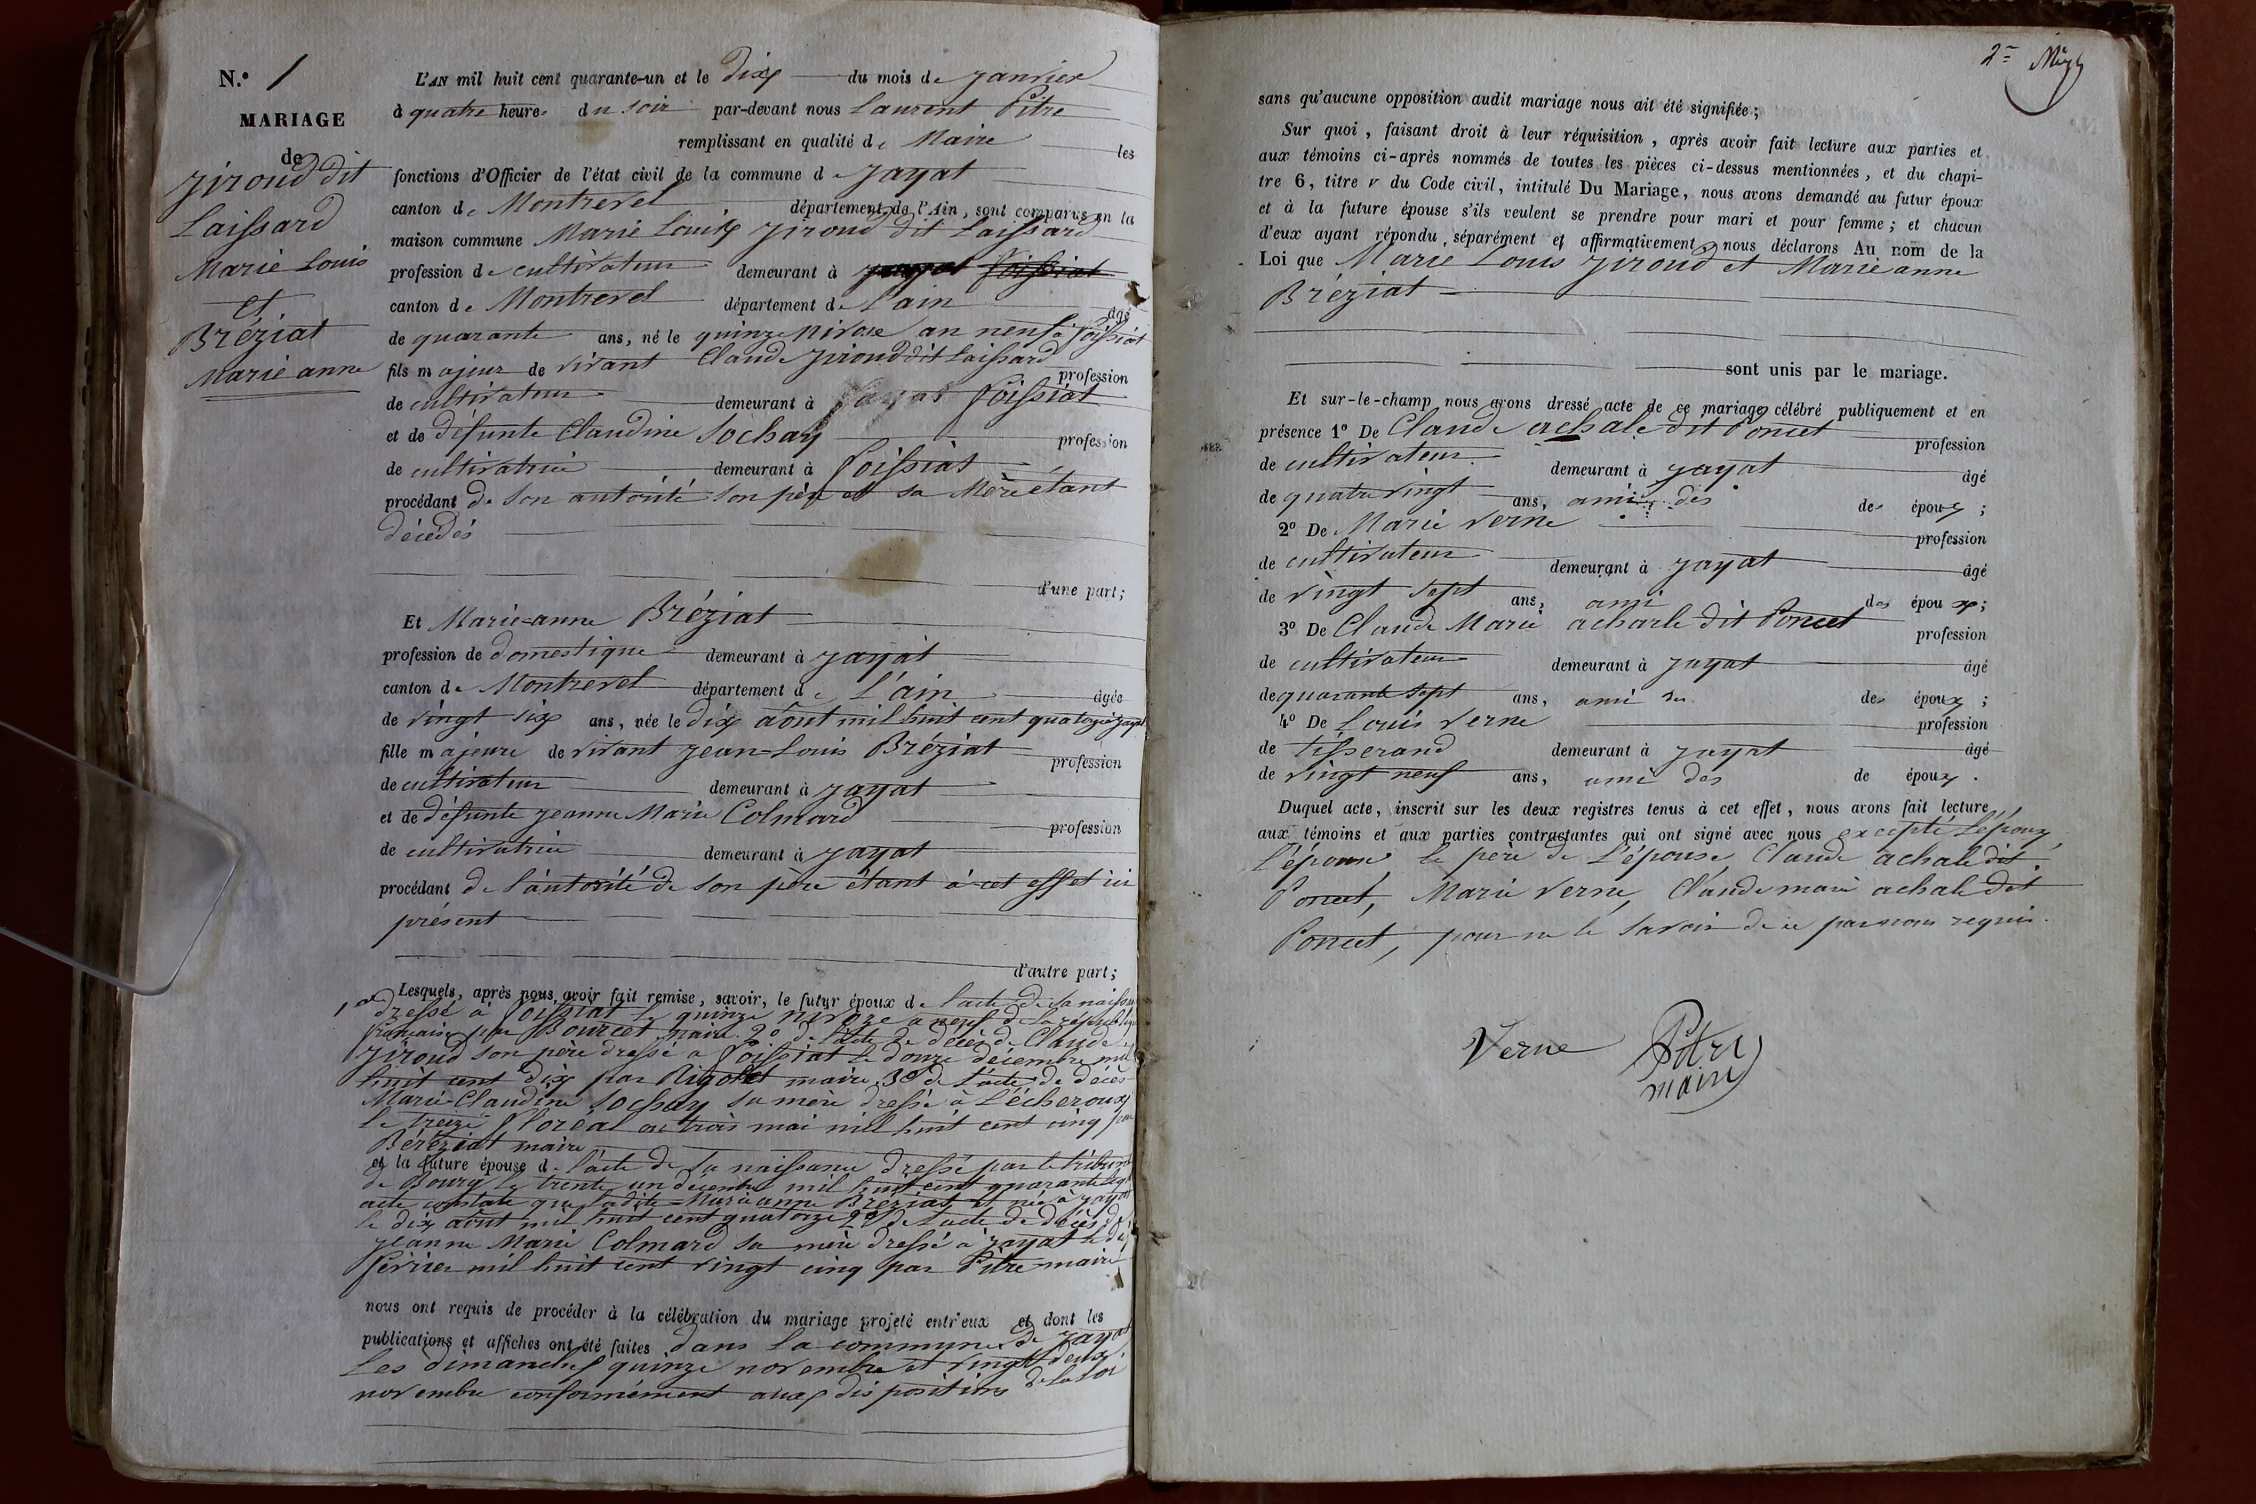 N.º 1
MARIAGE
de
Jiroud dit
Laissard
Marie Louis
et
Bréziat
Marie anne
L'AN mil huit cent quarante-un et le dix du mois de Janvier
à quatre heures du soir par-devant nous Laurent Pitre
remplissant en qualité de Maire les
fonctions d'Officier de l'état civil de la commune d Jayat
canton de Montrevel département de l'Ain, sont comparus en la
maison commune Marie Louis Jiroud dit Laissard
profession de cultivateur demeurant à Jayat Foissiat
canton de Montrevel département de l'ain âgé
de quarante ans, né le quinze Nivose an neuf à Foissiat
fils majeur de vivant Claude Jiroud dit Laissard profession
de cultivateur demeurant à Jayat Foissiat
et de défunte Claudine Sochay profession
de cultivatrice demeurant à Foissiat
procédant de son autorité son père et sa Mère étant
décédés
d'une part;
Et Marie-anne Bréziat
profession de domestique demeurant à Jayat
canton de Montrevel département de l'ain âgée
de vingt six ans, née le dix août mil huit cent quatorze Jayat
fille majeure de vivant Jean-Louis Bréziat profession
de cultivateur demeurant à Jayat
et de défunte Jeanne Marie Colmard profession
de cultivatrice demeurant à Jayat
procédant de l'autorité de son père étant à cet effet ici
présent
d'autre part;
Lesquels, après nous avoir fait remise, savoir, le futur époux de l'acte de sa naissance
dressé à Foissiat le quinze nivoze an neuf de la république
française par Bourcet maire 2º de l'acte de décès de Claude
Jiroud son père dressé à Foissiat le douze décembre mil
huit cent dix par Rigollet maire 3º de l'acte de décès
Marie-Claudine Sochay sa mère dressé à L'écheroux
le treize floréal ou trois mai mil huit cent cinq par
Béréziat maire
et la future épouse d. l'acte de sa naissance dressé par le tribunal
de Bourg le trente un décembre mil huit cent quarante lequel
acte constate que ladite Marie anne Bréziat est née à Jayat
le dix août mil huit cent quatorze 2º de l'acte de décès de
Jeanne Marie Colmard sa mère dressé à Jayat le dix
février mil huit cent vingt cinq par Pitre maire
nous ont requis de procéder à la célébration du mariage projeté entr'eux et dont les
publications et affiches ont été faites dans la commune de Jayat
Les dimanches quinze novembre et vingt deux
novembre conformément aux dispositions de la loi
2e
sans qu'aucune opposition audit mariage nous ait été signifiée;
Sur quoi, faisant droit à leur réquisition, après avoir fait lecture aux parties et
aux témoins ci-après nommés de toutes les pièces ci-dessus mentionnées, et du chapi-
tre 6, titre v du Code civil, intitulé Du Mariage, nous avons demandé au futur époux
et à la future épouse s'ils veulent se prendre pour mari et pour femme; et chacun
d'eux ayant répondu séparément et affirmativement, nous déclarons Au nom de la
Loi que Marie Louis Jiroud et Marie anne
Bréziat
sont unis par le mariage.
Et sur-le-champ nous avons dressé acte de ce mariage célébré publiquement et en
présence 1º De Claude achale dit Poncet profession
de cultivateur demeurant à Jayat âgé
de quatre vingt ans, ami des des époux;
2º De Marie Verne profession
de cultivateur demeurant à Jayat âgé
de vingt sept ans, ami des époux;
3º De Claude Marie acharle dit Poncet profession
de cultivateur demeurant à Jayat âgé
de quarante sept ans, ami des des époux;
4º De Louis Verne profession
de Tisserand demeurant à Jayat âgé
de vingt neuf ans, ami des de époux.
Duquel acte, inscrit sur les deux registres tenus à cet effet, nous avons fait lecture
aux témoins et aux parties contractantes qui ont signé avec nous excepté L'époux
l'épouse, le père de L'épouse, Claude achale dit
Poncet, Marie Verne, Claude marie achale dit
Poncet, pour ne le savoir de ce par nous requis.
Verne Pitre
maire